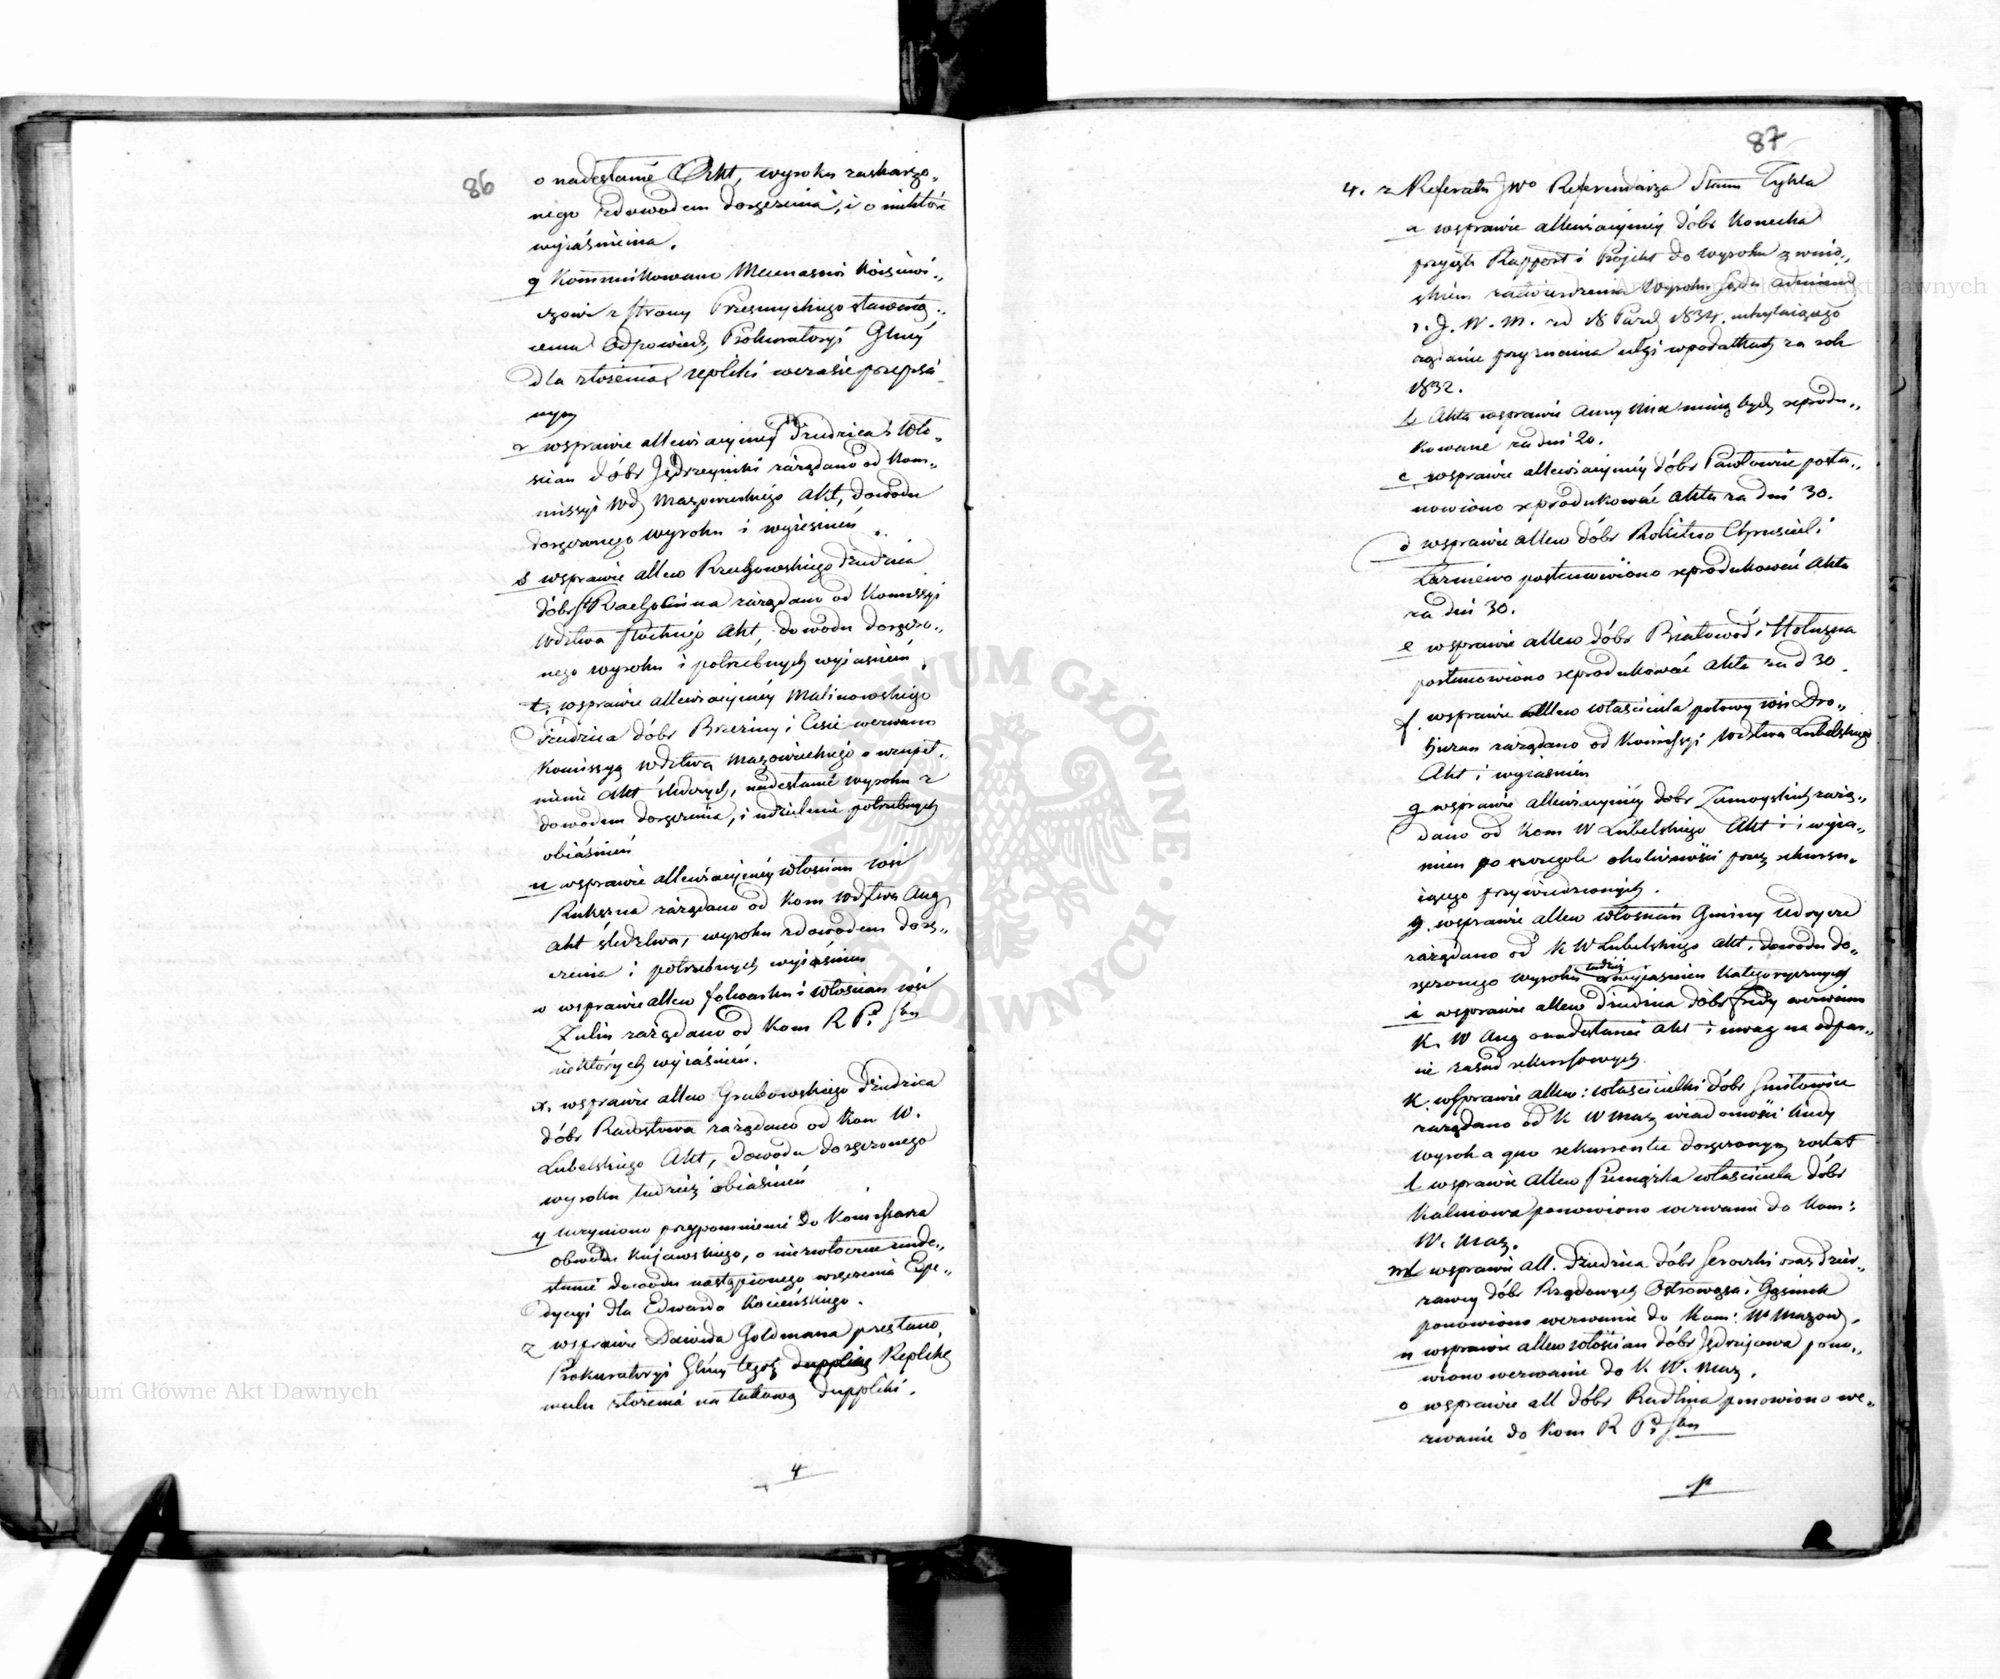 86
o nadesłanie Akt, wyroku zaskarżo„
nego z dowodem doręczenia, i o niektóre
wyjaśnienia.
q kommunikowano Mecenasowi
czowi z strony Przesmyckiego
cemu odpowiedź Prokuratoryi Głney
dla złożenia repliki w czasie przepisa„
nym
r w sprawie allewiacyjnéy Dziedzica i Wło„
ścian dóbr Jędrzejniki zażądano od Kom„
missyi Wdz Mazowieckiego Akt, dowodu
doręczonego wyroku i wyjaśnień.
s w sprawie allew Dziedzica
dóbr zażądano od Komissyi
Wdztwa Płockiego Akt, dowodu doręczo„
nego wyroku i potrzebnych wyjaśnień.
t. w sprawie allewiacyjnéy Malinowskiego
Dziedzica dóbr Brzeziny i Cisie wezwano
Komissyą Wdztwa Mazowieckiego o uzupeł„
nienie Akt śledczych, nadesłanie wyroku z
dowodem doręczenia, i udzielenie potrzebnych
objaśnień
u w sprawie allewiacyjnéy włościan wsi
zażądano od Kom Wdztwa Aug
Akt śledztwa, wyroku z dowodem dorę„
czenia i potrzebnych wyjaśnień
w w sprawie allew folwarku i włościan wsi
Zulin zażądano od Kom R P. i Sbu
niektórych wyjaśnień.
x. w sprawie allew Grabowskiego Dziedzica
dóbr zażądano od Kom W.
Lubelskiego Akt, dowodu doręczonego
wyroku tudzież objaśnień
y uczyniono przypomnienie do Komissarza
obwodu Kujawskiego, o niezwłoczne nade„
słanie dowodu nastąpionego wręczenia Expe„
dycyi dla Edwarda
z w sprawie Dawida Goldmana przesłano
Prokuratoryi Głney tegoż dupplikę Replikę
w celu złożenia na takową duppliki.
4
87
4. z Referatu JWo Referendarza Stanu Tykla
a w sprawie allewiacyjnéy dóbr Konecka
przyjęto Rapport i Projekt do wyroku z wnio„
skiem zatwierdzenia wyroku Sądu
J. W. M. z d 18 Pazdz 1834. uchylającego
żądanie przyznania ulgi w podatkach za rok
1832.
b Akta w sprawie Anny mają bydź reprodu„
kowane za dni 20.
c w sprawie allewiacyjnéy dóbr Pawłowie posta„
nowiono reprodukować Akta za dni 30.
d w sprawie allew dóbr Rokitno Chrusciel i
Łazniewo postanowiono reprodukować Akta
za dni 30.
e w sprawie allew dóbr Białowod i
postanowiono reprodukować Akta za d 30.
f. w sprawie allew właściciela połowy wsi Dro„
zażądano od Komissyi Wdztwa Lubelskiego
Akt i wyjaśnień
g w sprawie allewiacyjnéy dobr Zamoyskich zażą„
dano od Kom W Lubelskiego Akt i wyja„
śnień po szczególe okoliczności przez rekursu„
jącego przywiedzionych.
g. w sprawie allew włościan Gminy Udrycze
zażądano od K W Lubelskiego Akt, dowodu do„
ręczonego wyroku tudzież wyjaśnień kategorycznych
i w sprawie allew Dziedzica dóbr Fredy wezwano
K. W Aug o nadesłanie Akt i uwag na odpar„
cie zasad rekursowych.
k. w sprawie allew: właścicielki dóbr Smiłowice
zażądano od K W Maz wiadomości kiedy
wyrok a quo rekurrentce doręczonym został
l w sprawie allew właściciela dóbr
ponowiono wezwanie do Kom:
W. Maz.
m w sprawie all. Dziedzica dóbr Seroczki oraz dzier„
żawcy dóbr Rządowych Ostrowąsa i Gąsinek
ponowiono wezwanie do Kom: W Mazow.
n w sprawie allew włościan dóbr Jędrzejowa pono„
wiono wezwanie do K W. Maz.
o w sprawie all dóbr Radlina ponowiono we„
zwanie do Kom R P. i Sbu
p
Archiwum Główne Akt Dawnych
Archiwum Główne Akt Dawnych
ARCHIWUM GŁÓWNE AKT DAWNYCH